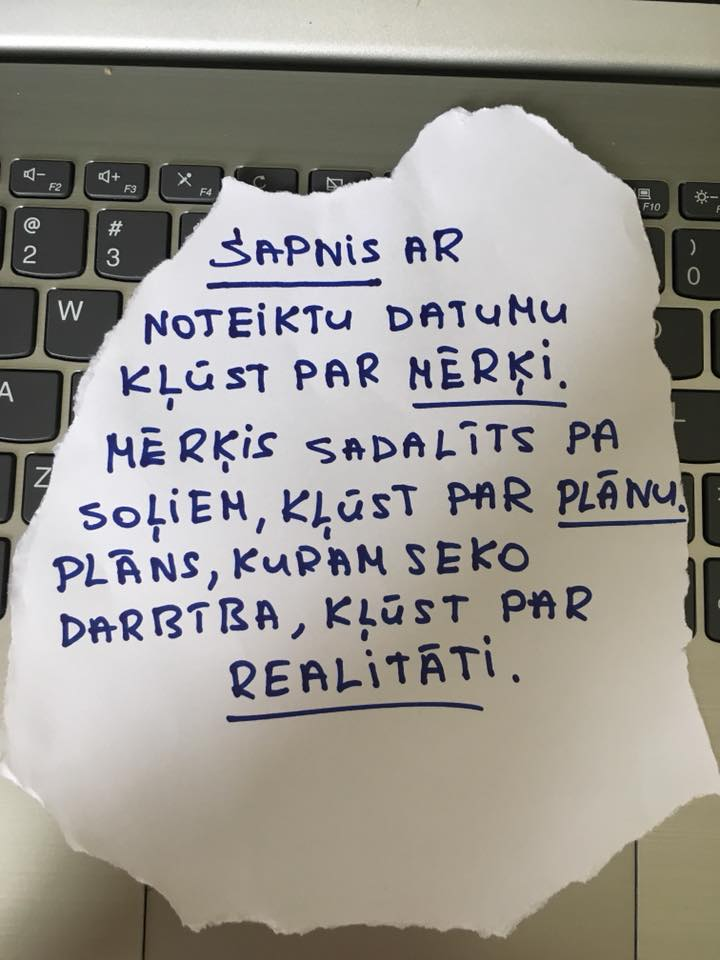 F2
F3
F4
F10
@
2
#
3
)
0
W
A
Z
SAPNIS AR
NOTEIKTU DATUMU
KĻŪST PAR MĒRĶI.
MĒRĶIS SADALĪTS PA
SOĻIEM, KĻŪST PAR PLĀNU.
PLĀNS, KURAM SEKO
DARBĪBA, KĻŪST PAR
REALITĀTI.